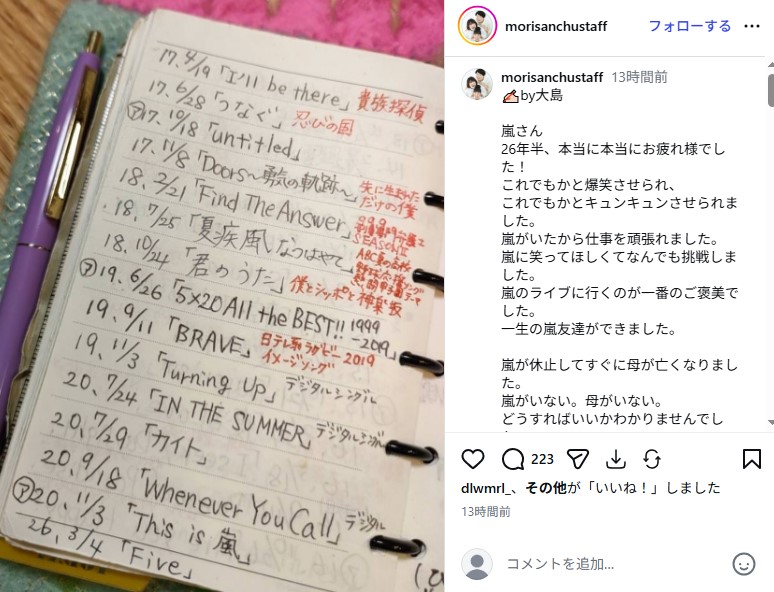 17. 4/19 「I'll be there」 貴族探偵
17. 6/28 「つなぐ」 忍びの国
㋐17. 10/18 「untitled」
17. 11/8 「Doors〜勇気の軌跡〜」 先に生まれただけの僕
18. 2/21 「Find The Answer」 99.9 刑事専門弁護士 SEASONⅡ
18. 7/25 「夏疾風」
18. 10/24 「君のうた」 僕とシッポと神楽坂
㋐19. 6/26 「5×20 All the BEST!! 1999-2019」
19. 9/11 「BRAVE」 日テレ系ラグビー2019 イメージソング
19. 11/3 「Turning Up」 デジタルシングル
20. 7/24 「IN THE SUMMER」 デジタルシングル
20. 7/29 「カイト」
20. 9/18 「Whenever You Call」 デジタル
㋐20. 11/3 「This is 嵐」
26. 3/4 「Five」
morisanchustaff フォローする
morisanchustaff 13時間前
✍by大島
嵐さん
26年半、本当に本当にお疲れ様でし
た！
これでもかと爆笑させられ、
これでもかとキュンキュンさせられま
した。
嵐がいたから仕事を頑張れました。
嵐に笑ってほしくてなんでも挑戦しま
した。
嵐のライブに行くのが一番のご褒美で
した。
一生の嵐友達ができました。
嵐が休止してすぐに母が亡くなりまし
た。
嵐がいない。母がいない。
どうすればいいかわかりませんでし
223
dlwmrl_、その他が「いいね！」しました
13時間前
コメントを追加...